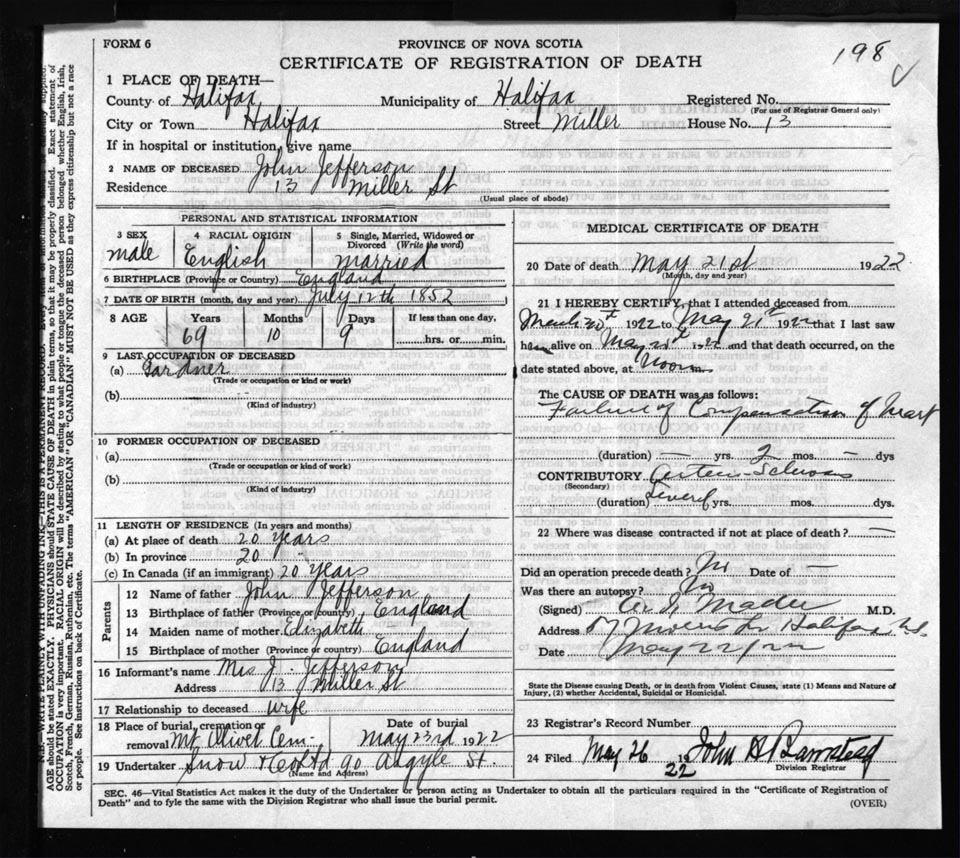 FORM 6
PROVINCE OF NOVA SCOTIA
CERTIFICATE OF REGISTRATION OF DEATH
198 ✓
1 PLACE OF DEATH—
County of Halifax Municipality of Halifax Registered No.
(For use of Registrar General only)
City or Town Halifax Street Miller House No. 13
If in hospital or institution, give name
2 NAME OF DECEASED John Jefferson
Residence 13 Miller St
(Usual place of abode)
PERSONAL AND STATISTICAL INFORMATION
3 SEX 4 RACIAL ORIGIN 5 Single, Married, Widowed or Divorced (Write the word)
male English married
6 BIRTHPLACE (Province or Country) England
7 DATE OF BIRTH (month, day and year) July 12th 1852
8 AGE Years Months Days If less than one day,
69 10 9 hrs. or min.
9 LAST OCCUPATION OF DECEASED
(a) Gardner
(Trade or occupation or kind or work)
(b)
(Kind of industry)
10 FORMER OCCUPATION OF DECEASED
(a)
(Trade or occupation or kind of work)
(b)
(Kind of industry)
11 LENGTH OF RESIDENCE (In years and months)
(a) At place of death 20 years
(b) In province 20 "
(c) In Canada (if an immigrant) 20 years
Parents
12 Name of father John Jefferson
13 Birthplace of father (Province or country) England
14 Maiden name of mother Elizabeth
15 Birthplace of mother (Province or country) England
16 Informant's name Mrs J. Jefferson
Address 13 Miller St
17 Relationship to deceased wife
18 Place of burial, cremation or Date of burial
removal Mt Olivet Cem- May 23rd 1922
19 Undertaker Snow & Co Ltd 90 Argyle St.
(Name and Address)
MEDICAL CERTIFICATE OF DEATH
20 Date of death May 21st 1922
(Month, day and year)
21 I HEREBY CERTIFY, that I attended deceased from
March 20th 1922 to May 21st 1922 that I last saw
him alive on May 1922 and that death occurred, on the
date stated above, at Noon m.
The CAUSE OF DEATH was as follows:
Failure of Compensation of Heart
(duration) — yrs. 2 mos. — dys
CONTRIBUTORY Arterio-Sclerosis
(Secondary)
(duration) Several yrs. mos. dys.
22 Where was disease contracted if not at place of death? —
Did an operation precede death? No Date of —
Was there an autopsy? No
(Signed) Mader M.D.
Address Halifax N.S.
Date May 22/22
State the Disease causing Death, or in death from Violent Causes, state (1) Means and Nature of
Injury, (2) whether Accidental, Suicidal or Homicidal.
23 Registrar's Record Number
24 Filed May 26 1922 John A Barnstead
Division Registrar
SEC. 46—Vital Statistics Act makes it the duty of the Undertaker or person acting as Undertaker to obtain all the particulars required in the "Certificate of Registration of
Death" and to fyle the same with the Division Registrar who shall issue the burial permit.
(OVER)
N.B.—WRITE PLAINLY WITH UNFADING INK—THIS IS A PERMANENT RECORD.
AGE should be stated EXACTLY. PHYSICIANS should STATE CAUSE OF DEATH in plain terms, so that it may be properly classified. Exact statement of
OCCUPATION is very important. RACIAL ORIGIN will be described by stating to what people or tongue the deceased person belonged, whether English, Irish,
Scotch, French, German, Russian, Ruthenian, etc. The terms "AMERICAN" OR "CANADIAN" MUST NOT BE USED as they express citizenship but not a race
or people. See instructions on back of Certificate.